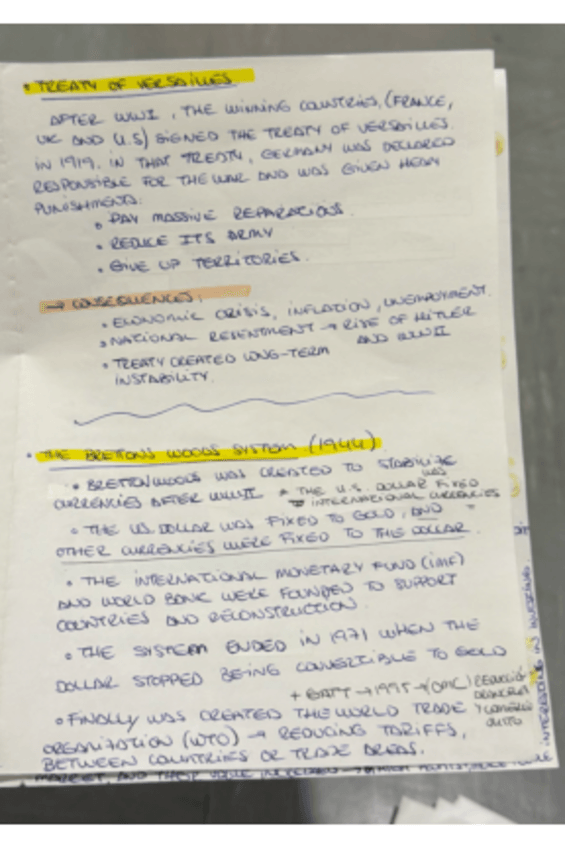 • TREATY OF VERSAILLES
AFTER WWI, THE WINNING COUNTRIES, (FRANCE,
UK AND U.S) SIGNED THE TREATY OF VERSAILLES.
IN 1919. IN THAT TREATY, GERMANY WAS DECLARED
RESPONSIBLE FOR THE WAR AND WAS GIVEN HEAVY
PUNISHMENTS:
• PAY MASSIVE REPARATIONS.
• REDUCE ITS ARMY
• GIVE UP TERRITORIES.
→ CONSEQUENCES:
• ECONOMIC CRISIS, INFLATION, UNEMPLOYMENT.
• NATIONAL RESENTMENT → RISE OF HITLER
AND WWII
• TREATY CREATED LONG-TERM
INSTABILITY.
• THE BRETTONS WOODS SYSTEM (1944)
• BRETTON WOODS WAS CREATED TO STABILIZE
CURRENCIES AFTER WWII * THE U.S. DOLLAR WAS FIXED
INTERNATIONAL CURRENCIES
• THE US DOLLAR WAS FIXED TO GOLD, AND
OTHER CURRENCIES WERE FIXED TO THE DOLLAR.
• THE INTERNATIONAL MONETARY FUND (IMF)
AND WORLD BANK WERE FOUNDED TO SUPPORT
COUNTRIES AND RECONSTRUCTION.
• THE SYSTEM ENDED IN 1971 WHEN THE
DOLLAR STOPPED BEING CONVERTIBLE TO GOLD
+ GATT → 1995 → (OMC)
• FINALLY WAS CREATED THE WORLD TRADE
ORGANIZATION (WTO) → REDUCING TARIFFS,
BETWEEN COUNTRIES OR TRADE AREAS.
MARKET, AND THEIR VALUE